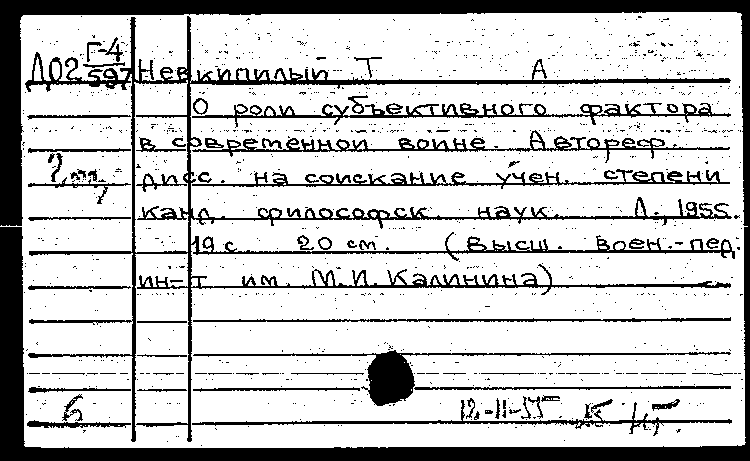 Д02 Г-4/597 Невкипилый Т А
О роли субъективного фактора
в современной войне. Автореф.
дисс. на соискание учен. степени
канд. философск. наук. Л., 1955.
19 с. 20 см. (Высш. воен.-пед.
ин-т им. М.И. Калинина)
6 12-11-55